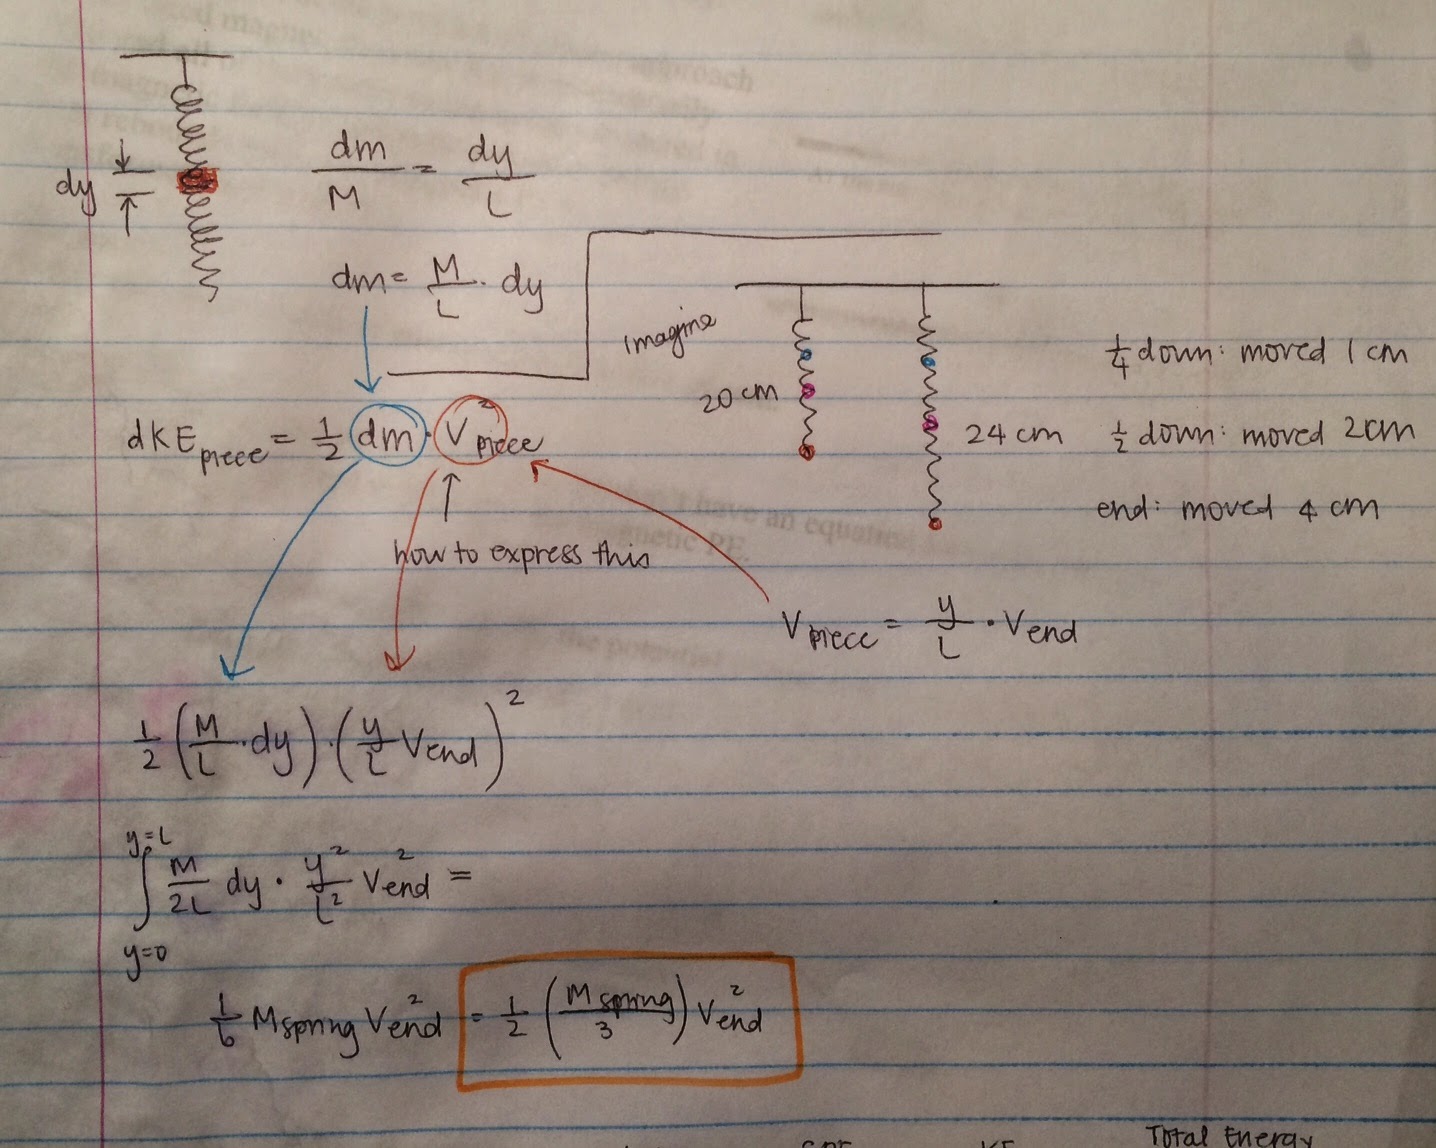 dy
dm/M = dy/L
dm = M/L · dy
imagine
20 cm
24 cm
1/4 down: moved 1 cm
1/2 down: moved 2cm
end: moved 4 cm
dKE_piece = 1/2 dm · V²_piece
how to express this
V_piece = y/L · V_end
1/2 (M/L · dy) · (y/L V_end)²
∫_{y=0}^{y=L} M/2L dy · y²/L² V_end² =
1/6 M_spring V_end² = 1/2 (M_spring/3) V_end²
Total Energy